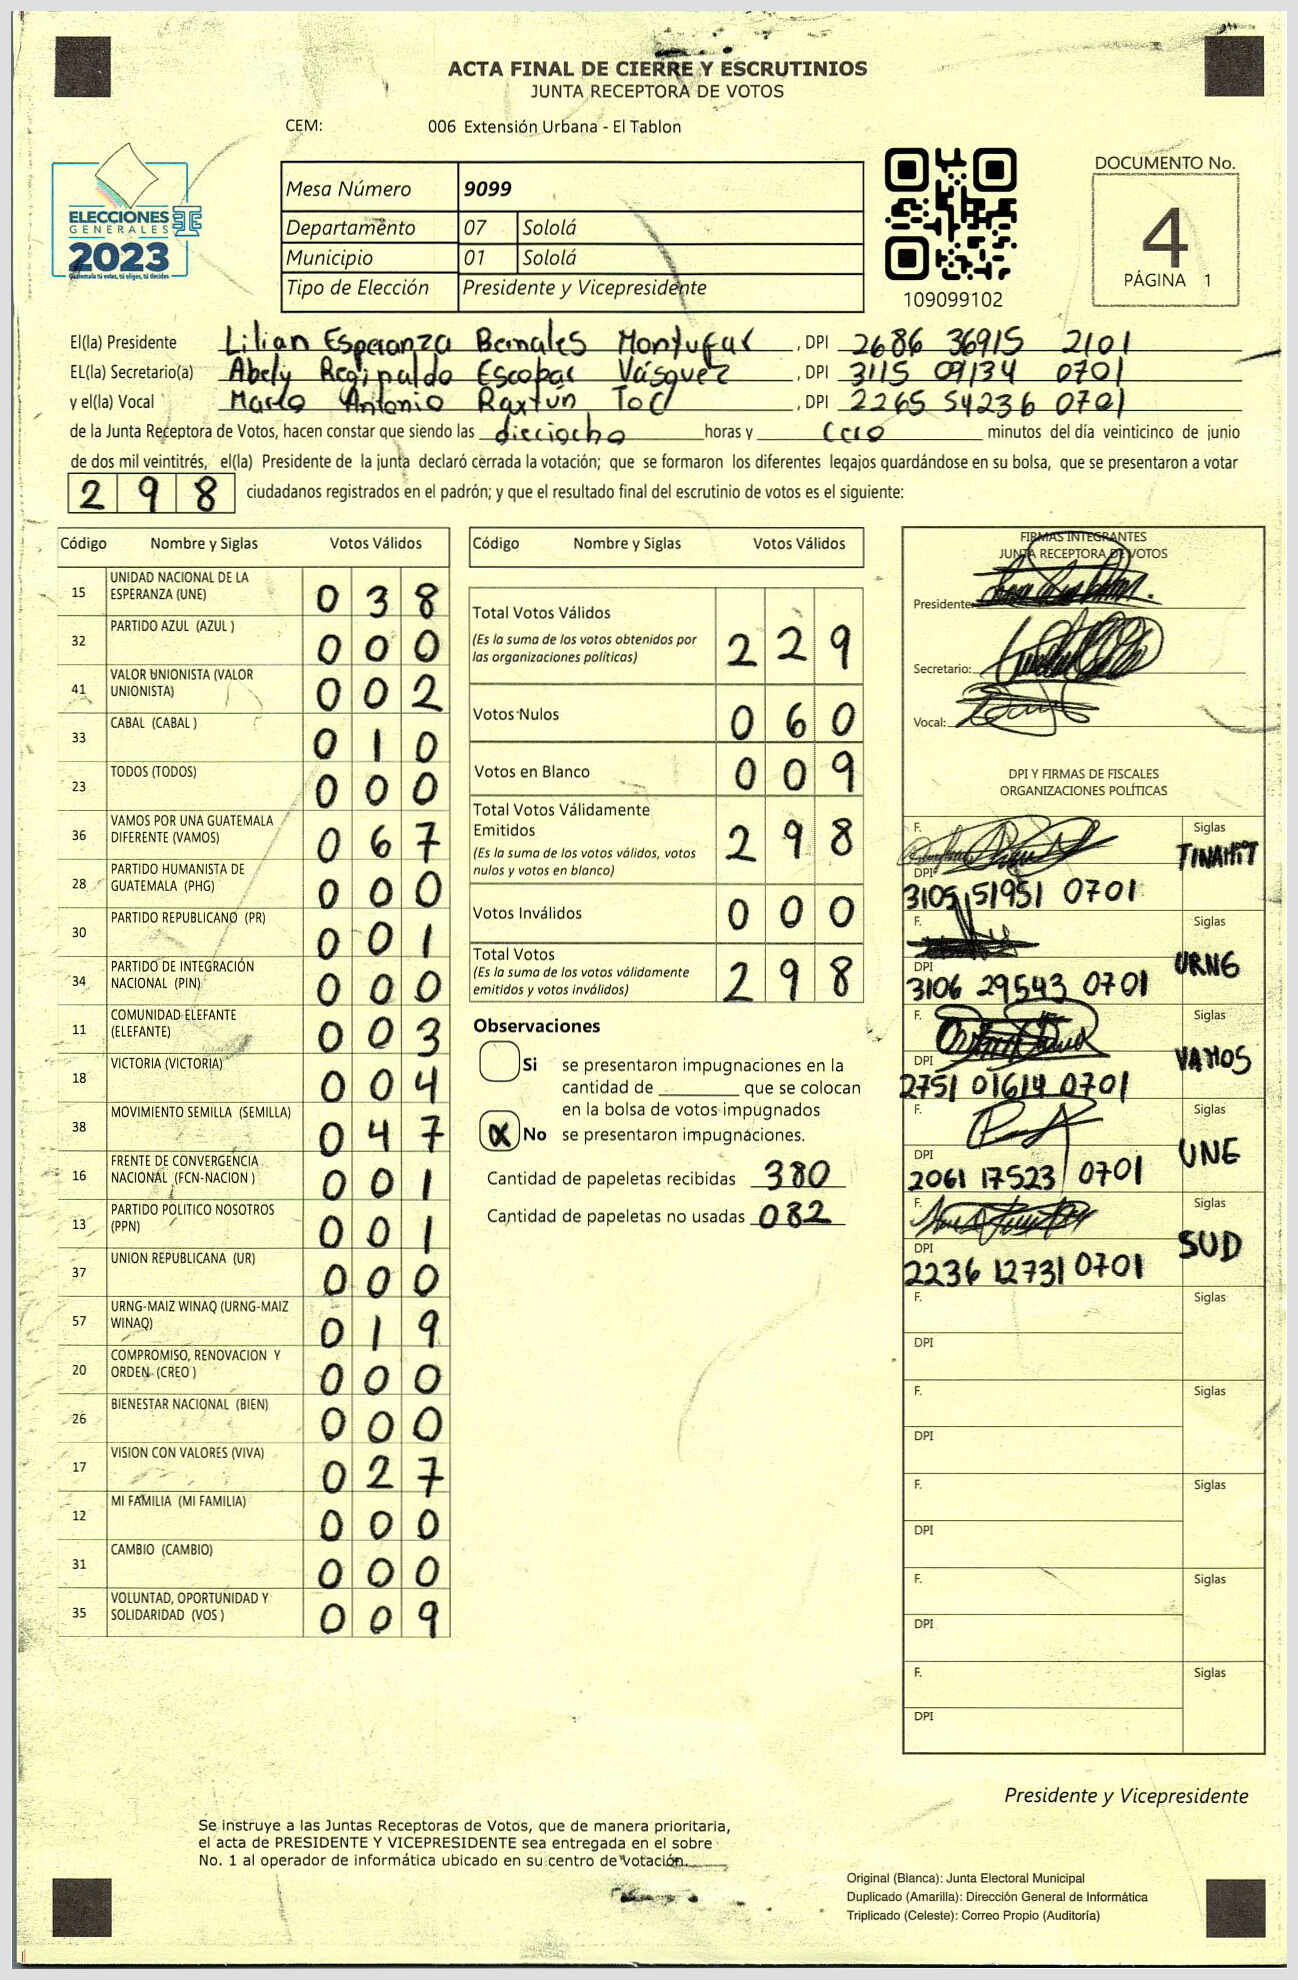 ACTA FINAL DE CIERRE Y ESCRUTINIOS
JUNTA RECEPTORA DE VOTOS
CEM: 006 Extensión Urbana - El Tablon
ELECCIONES
GENERALES
2023
Guatemala tú votas, tú eliges, tú decides
Mesa Número 9099
Departamento 07 Sololá
Municipio 01 Sololá
Tipo de Elección Presidente y Vicepresidente
109099102
DOCUMENTO No.
4
PÁGINA 1
El(la) Presidente Lilian Esperanza Bernales Montufar, DPI 2686 36915 2101
EL(la) Secretario(a) Abely Reginaldo Escobar Vásquez, DPI 3115 09134 0701
y el(la) Vocal Mario Antonio Raxtún Toc, DPI 2265 54236 0701
de la Junta Receptora de Votos, hacen constar que siendo las dieciocho horas y cero minutos del día veinticinco de junio
de dos mil veintitrés, el(la) Presidente de la junta declaró cerrada la votación; que se formaron los diferentes legajos quardándose en su bolsa, que se presentaron a votar
298 ciudadanos registrados en el padrón; y que el resultado final del escrutinio de votos es el siguiente:
Código Nombre y Siglas Votos Válidos
15 UNIDAD NACIONAL DE LA ESPERANZA (UNE) 038
32 PARTIDO AZUL (AZUL ) 000
41 VALOR UNIONISTA (VALOR UNIONISTA) 002
33 CABAL (CABAL ) 010
23 TODOS (TODOS) 000
36 VAMOS POR UNA GUATEMALA DIFERENTE (VAMOS) 067
28 PARTIDO HUMANISTA DE GUATEMALA (PHG) 000
30 PARTIDO REPUBLICANO (PR) 001
34 PARTIDO DE INTEGRACIÓN NACIONAL (PIN) 000
11 COMUNIDAD ELEFANTE (ELEFANTE) 003
18 VICTORIA (VICTORIA) 004
38 MOVIMIENTO SEMILLA (SEMILLA) 047
16 FRENTE DE CONVERGENCIA NACIONAL (FCN-NACION ) 001
13 PARTIDO POLITICO NOSOTROS (PPN) 001
37 UNION REPUBLICANA (UR) 000
57 URNG-MAIZ WINAQ (URNG-MAIZ WINAQ) 019
20 COMPROMISO, RENOVACION Y ORDEN (CREO ) 000
26 BIENESTAR NACIONAL (BIEN) 000
17 VISION CON VALORES (VIVA) 027
12 MI FAMILIA (MI FAMILIA) 000
31 CAMBIO (CAMBIO) 000
35 VOLUNTAD, OPORTUNIDAD Y SOLIDARIDAD (VOS ) 009
Código Nombre y Siglas Votos Válidos
Total Votos Válidos 229
(Es la suma de los votos obtenidos por
las organizaciones políticas)
Votos Nulos 060
Votos en Blanco 009
Total Votos Válidamente
Emitidos 298
(Es la suma de los votos válidos, votos
nulos y votos en blanco)
Votos Inválidos 000
Total Votos 298
(Es la suma de los votos válidamente
emitidos y votos inválidos)
Observaciones
Si se presentaron impugnaciones en la
cantidad de ________ que se colocan
en la bolsa de votos impugnados
X No se presentaron impugnaciones.
Cantidad de papeletas recibidas 380
Cantidad de papeletas no usadas 082
FIRMAS INTEGRANTES
JUNTA RECEPTORA DE VOTOS
Presidente:
Secretario:
Vocal:
DPI Y FIRMAS DE FISCALES
ORGANIZACIONES POLÍTICAS
F. Siglas TINAMIT
DPI 3105 51951 0701
F. Siglas URNG
DPI 3106 29543 0701
F. Siglas VAMOS
DPI 2751 01614 0701
F. Siglas UNE
DPI 2061 17523 0701
F. Siglas SUD
DPI 2236 12731 0701
F. Siglas
DPI
F. Siglas
DPI
F. Siglas
DPI
F. Siglas
DPI
F. Siglas
DPI
Presidente y Vicepresidente
Se instruye a las Juntas Receptoras de Votos, que de manera prioritaria,
el acta de PRESIDENTE Y VICEPRESIDENTE sea entregada en el sobre
No. 1 al operador de informática ubicado en su centro de votación.
Original (Blanca): Junta Electoral Municipal
Duplicado (Amarilla): Dirección General de Informática
Triplicado (Celeste): Correo Propio (Auditoría)